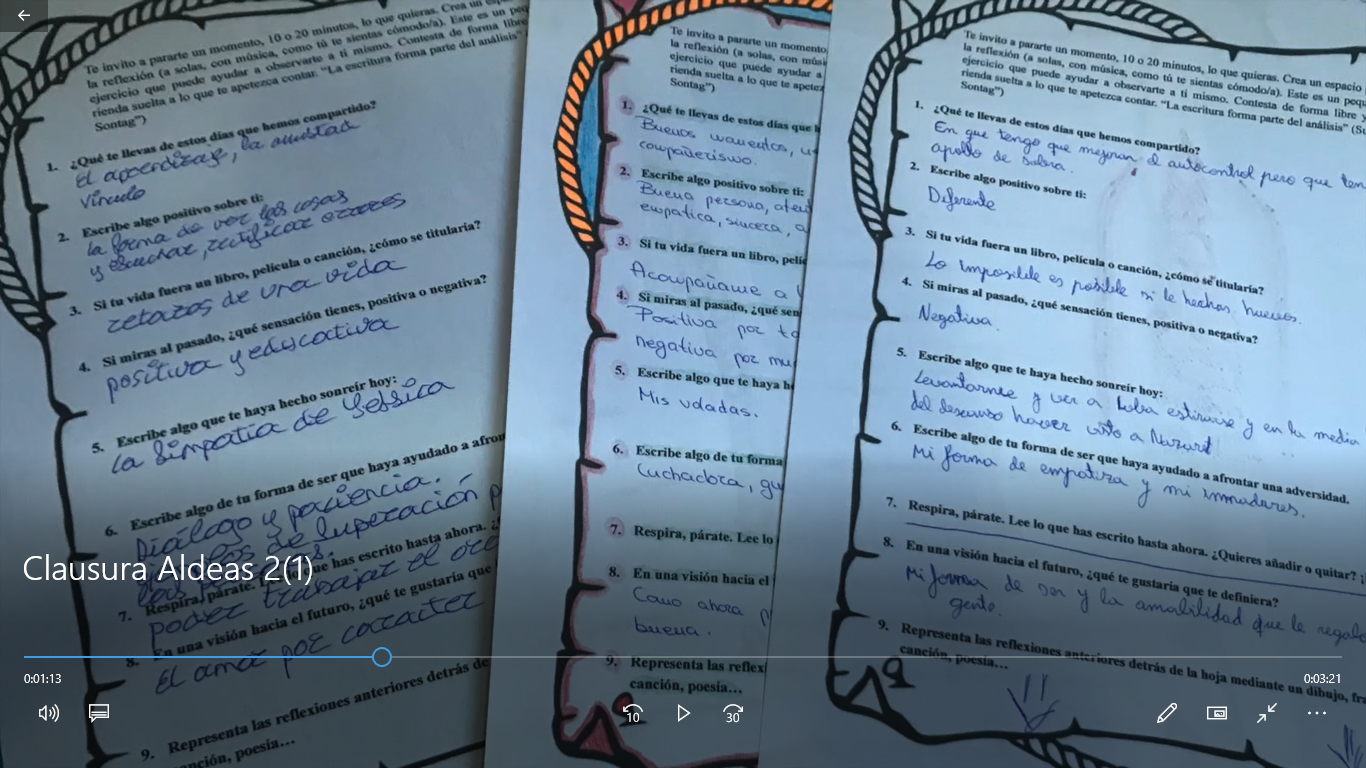 Te invito a pararte un momento, 10 o 20 minutos, lo que quieras. Crea un
la reflexión (a solas, con música, como tú te sientas cómodo/a). Este es un
ejercicio que puede ayudar a observarte a ti mismo. Contesta de forma libre
rienda suelta a lo que te apetezca contar. "La escritura forma parte del análisis"
Sontag")
1. ¿Qué te llevas de estos días que hemos compartido?
El aprendizaje, la amistad
vínculo
2. Escribe algo positivo sobre ti:
la forma de ver las cosas
y escuchar, rectificar errores
3. Si tu vida fuera un libro, película o canción, ¿cómo se titularía?
retazos de una vida
4. Si miras al pasado, ¿qué sensación tienes, positiva o negativa?
positiva y educativa
5. Escribe algo que te haya hecho sonreír hoy:
La Simpatía de Yessica
6. Escribe algo de tu forma de ser que haya ayudado a afron
Diálogo y paciencia.
de superación
7. Respira, párate. que has escrito hasta ahora.
poder trabajar el
8. En una visión hacia el futuro, ¿qué te gustaría que
El amor por
9. Representa las reflexiones anteriores detrás de
canción, poesía...
Te invito a pararte un momento
la reflexión (a solas, con
ejercicio que puede ayudar a
rienda suelta a lo que te
Sontag")
1. ¿Qué te llevas de estos días que
Buenos momentos,
compañerismo.
2. Escribe algo positivo sobre ti:
Buena persona,
empatica, sincera,
3. Si tu vida fuera un libro,
Acompáñame a
4. Si miras al pasado, ¿qué sen
Positiva por
negativa por
5. Escribe algo que te haya
Mis voladas.
6. Escribe algo de tu forma
Luchadora,
7. Respira, párate. Lee lo
8. En una visión hacia el
Como ahora
buena.
9. Representa las reflex
canción, poesía...
Te invito a pararte un momento, 10 o 20 minutos, lo que quieras. Crea un espacio
la reflexión (a solas, con música, como tú te sientas cómodo/a). Este es un
ejercicio que puede ayudar a observarte a ti mismo. Contesta de forma libre y
rienda suelta a lo que te apetezca contar. "La escritura forma parte del análisis"
Sontag")
1. ¿Qué te llevas de estos días que hemos compartido?
En que tengo que mejorar el autocontrol pero que
apollo de sobra.
2. Escribe algo positivo sobre ti:
Diferente
3. Si tu vida fuera un libro, película o canción, ¿cómo se titularía?
Lo imposible es posible si le hechas huevos.
4. Si miras al pasado, ¿qué sensación tienes, positiva o negativa?
Negativa.
5. Escribe algo que te haya hecho sonreír hoy:
Levantarme y ver a estirarse y en la media
del descanso haver visto a
6. Escribe algo de tu forma de ser que haya ayudado a afrontar una adversidad.
Mi forma de empatiza y mi inmadures.
7. Respira, párate. Lee lo que has escrito hasta ahora. ¿Quieres añadir o quitar?
8. En una visión hacia el futuro, ¿qué te gustaría que te definiera?
Mi forma de ser y la amabilidad que le
gente.
9. Representa las reflexiones anteriores detrás de la hoja mediante un dibujo,
canción, poesía...
Clausura Aldeas 2(1)
0:01:13
0:03:21
10
30